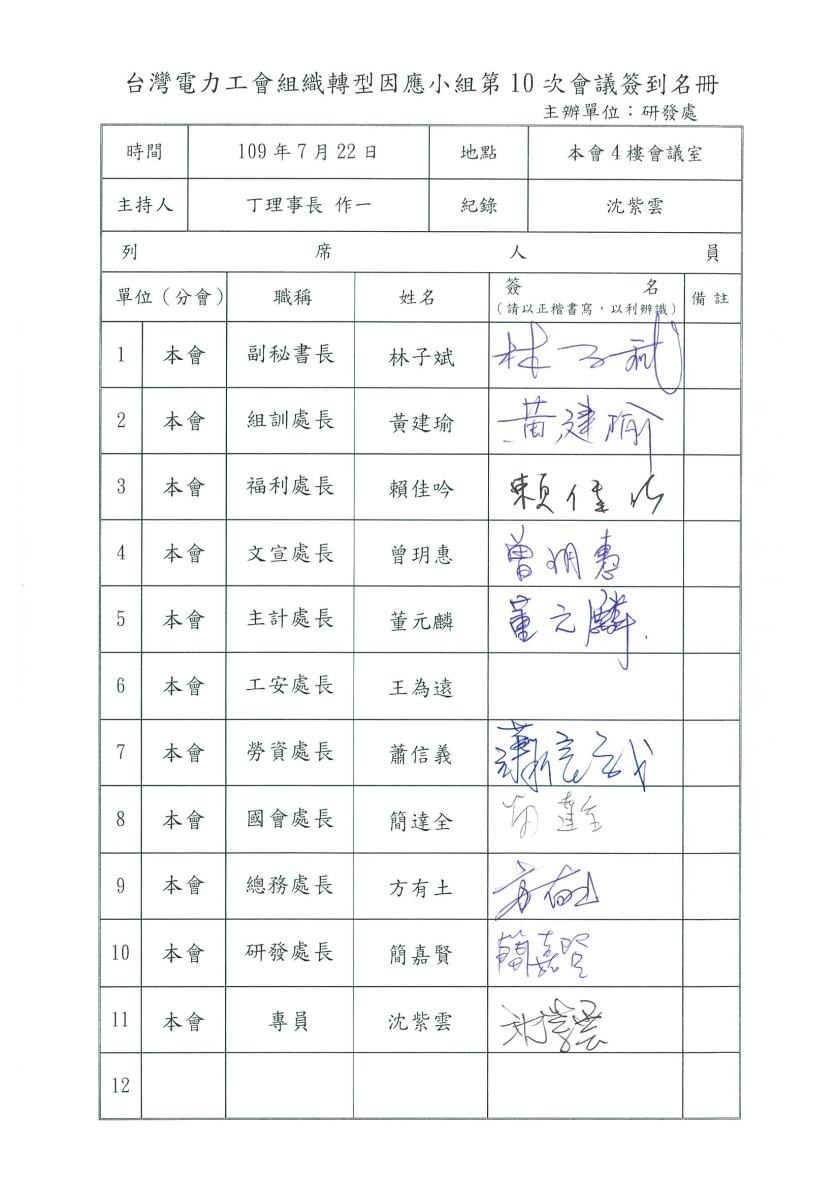 台灣電力工會組織轉型因應小組第10次會議簽到名冊
主辦單位：研發處
時間 109年7月22日 地點 本會4樓會議室
主持人 丁理事長 作一 紀錄 沈紫雲
列席人員
單位（分會） 職稱 姓名 簽名 備註
（請以正楷書寫，以利辨識）
1 本會 副秘書長 林子斌 林子斌
2 本會 組訓處長 黃建瑜 黃建瑜
3 本會 福利處長 賴佳吟 賴佳吟
4 本會 文宣處長 曾玥惠 曾玥惠
5 本會 主計處長 董元麟 董元麟
6 本會 工安處長 王為遠
7 本會 勞資處長 蕭信義 蕭信義
8 本會 國會處長 簡達全 簡達全
9 本會 總務處長 方有土 方有土
10 本會 研發處長 簡嘉賢 簡嘉賢
11 本會 專員 沈紫雲 沈紫雲
12